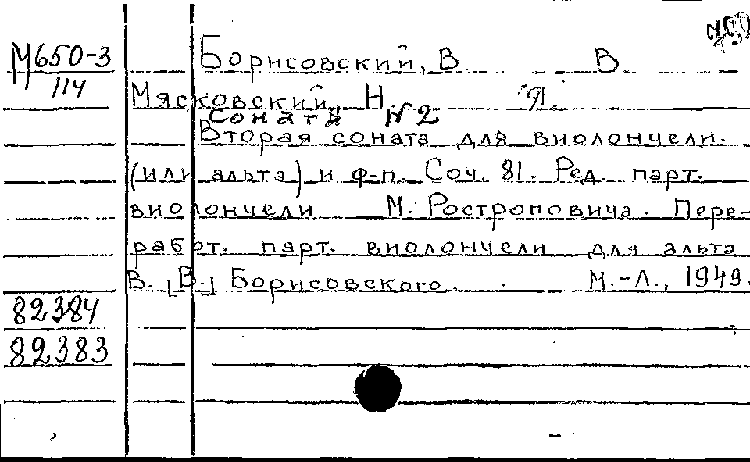 М650-3
114
Борисовский, В. В.
Мясковский, Н. Я.
Соната №2
Вторая соната для виолончели
(или альта) и ф-п. Соч. 81. Ред. парт.
виолончели М. Ростроповича. Пере-
работ. парт. виолончели для альта
В. [В.] Борисовского. М.-Л., 1949.
82384
82383